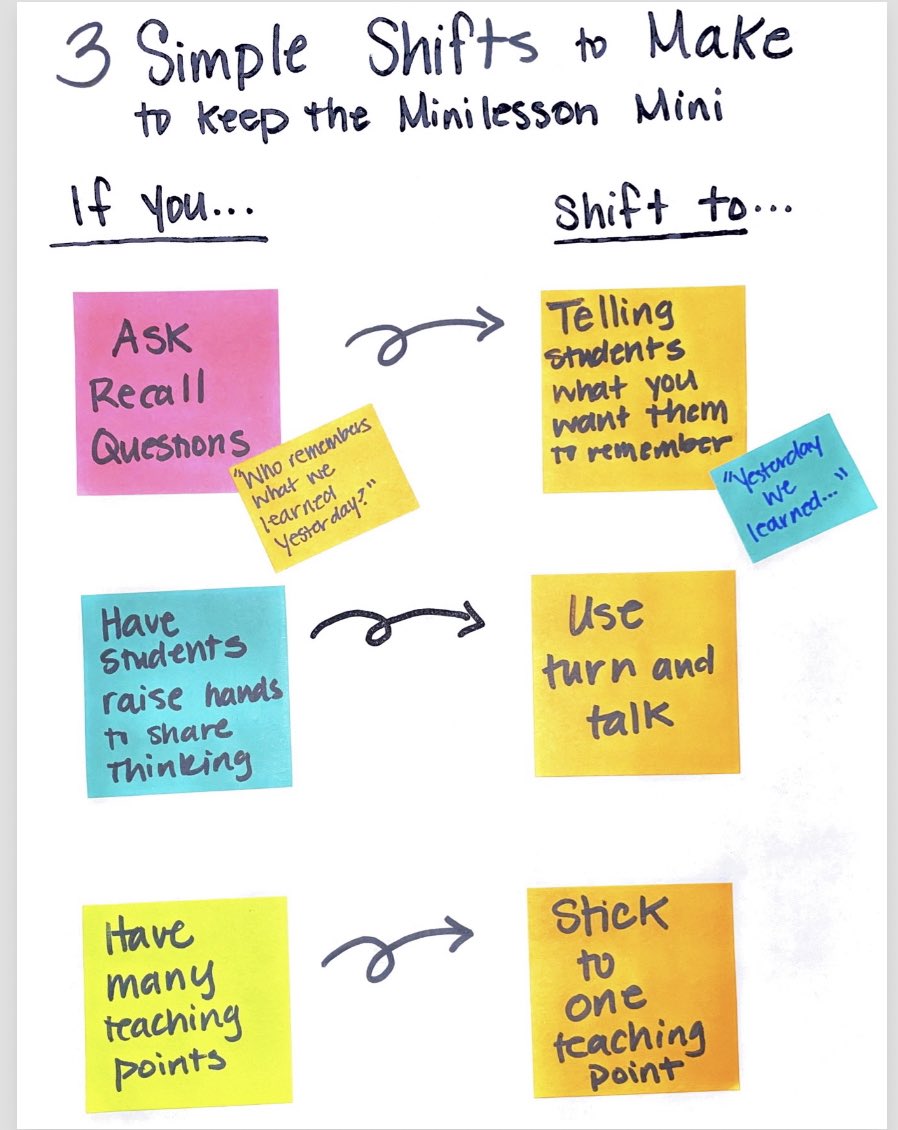 3 Simple Shifts to Make
to keep the Minilesson Mini
If you...
Shift to...
Ask
Recall
Questions
"Who remembers
what we
learned
yesterday?"
Telling
students
what you
want them
to remember
"Yesterday
we
learned..."
Have
students
raise hands
to share
thinking
Use
turn and
talk
Have
many
teaching
points
Stick
to
one
teaching
point